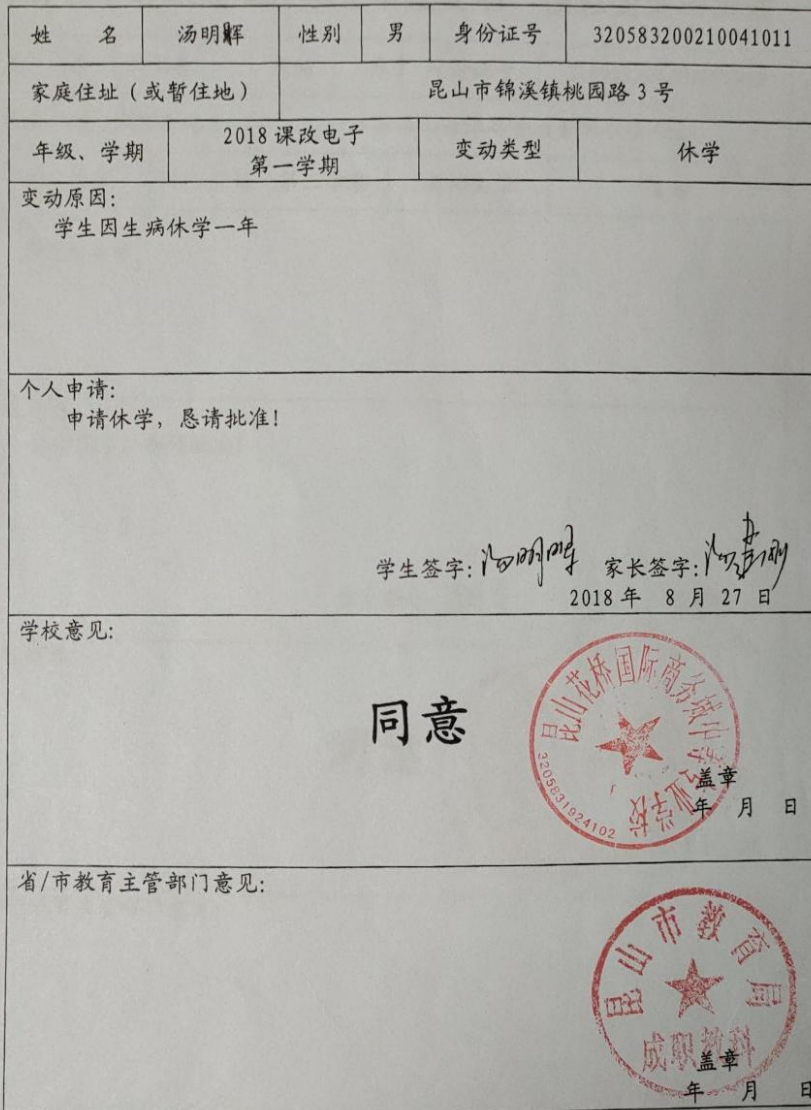 姓 名 汤明辉 性别 男 身份证号 320583200210041011
家庭住址（或暂住地） 昆山市锦溪镇桃园路 3 号
年级、学期 2018 课改电子 第一学期 变动类型 休学
变动原因：
学生因生病休学一年
个人申请：
申请休学，恳请批准！
学生签字：汤明辉 家长签字：
2018 年 8 月 27 日
学校意见：
同意
昆山花桥国际商务城中等专业学校
3205831924102
盖章
年 月 日
省/市教育主管部门意见：
昆山市教育局
成职教科
盖章
年 月 日